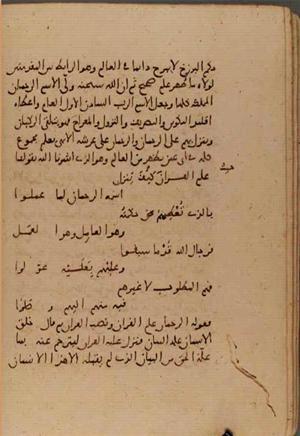 حكم البرزخ لا يبرح دائما في العالم وهو الرابط بين المقدمتين
لولاه ما ظهر علم صحيح ثم ان الله سبحنه ولى الاسم الرحمان
المملكة كلها وجعل الاسم الرب السادن الاول العام واعطاه
اقليد التكوين والتصريف والنزول والمعراج فهو يتلقى الركبان
وينزل بهم على الرحمان والرحمان على عرشه الابهى يعلم بمجموع
كلمه الى عين يظهر من العالم وهو الذي اشرنا اليه بقولنا
علم القرءان كيف ينزل
اسمه الرحمان لما عملوا
بالذي تعطيهم حكمته
وهو العامل وهو العمل
فرجال الله قد ما سبقوا
وعليهم بعلمه عولوا
فهم المطلوب لا غيرهم
فبه منهم اليهم وصلوا
فقوله الرحمان علم القران ونصب القران ثم قال خلق
الانسان علمه البيان فنزل عليه القران ليترجم عنه بما
علمه الحق من البيان الذي لم يقبله الا هذا الانسان